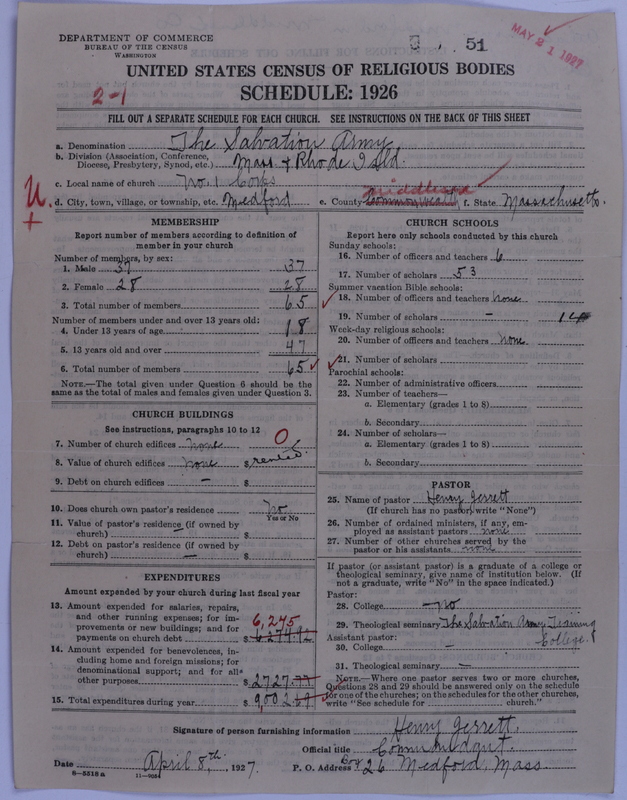 DEPARTMENT OF COMMERCE
BUREAU OF THE CENSUS
WASHINGTON
51
MAY 21 1927
UNITED STATES CENSUS OF RELIGIOUS BODIES
2-1
SCHEDULE: 1926
FILL OUT A SEPARATE SCHEDULE FOR EACH CHURCH. SEE INSTRUCTIONS ON THE BACK OF THIS SHEET
a. Denomination The Salvation Army
b. Division (Association, Conference, Diocese, Presbytery, Synod, etc.) Mass & Rhode Isld.
c. Local name of church No. 1 Corps
U+
d. City, town, village, or township, etc. Medford e. County Commonwealth Middlesex f. State Massachusetts.
MEMBERSHIP
Report number of members according to definition of
member in your church
Number of members, by sex:
1. Male 37 37
2. Female 28 28
3. Total number of members 65
Number of members under and over 13 years old:
4. Under 13 years of age 18
5. 13 years old and over 47
6. Total number of members 65
NOTE.—The total given under Question 6 should be the
same as the total of males and females given under Question 3.
CHURCH BUILDINGS
See instructions, paragraphs 10 to 12
7. Number of church edifices none 0
8. Value of church edifices none $ rented.
9. Debt on church edifices — $
10. Does church own pastor's residence No
Yes or No
11. Value of pastor's residence (if owned by
church) — $
12. Debt on pastor's residence (if owned by
church) — $
EXPENDITURES
Amount expended by your church during last fiscal year
13. Amount expended for salaries, repairs,
and other running expenses; for im-
provements or new buildings; and for
payments on church debt $ 6,275
14. Amount expended for benevolences, in-
cluding home and foreign missions; for
denominational support; and for all
other purposes $ 2727.77
15. Total expenditures during year $ 9002
CHURCH SCHOOLS
Report here only schools conducted by this church
Sunday schools:
16. Number of officers and teachers 6
17. Number of scholars 53
Summer vacation Bible schools:
18. Number of officers and teachers none
19. Number of scholars —
Week-day religious schools:
20. Number of officers and teachers none
21. Number of scholars
Parochial schools:
22. Number of administrative officers
23. Number of teachers—
a. Elementary (grades 1 to 8)
b. Secondary
24. Number of scholars—
a. Elementary (grades 1 to 8)
b. Secondary
PASTOR
25. Name of pastor Henry Gerrett
(If church has no pastor, write "None")
26. Number of ordained ministers, if any, em-
ployed as assistant pastors none
27. Number of other churches served by the
pastor or his assistants none
If pastor (or assistant pastor) is a graduate of a college or
theological seminary, give name of institution below. (If
not a graduate, write "No" in the space indicated.)
Pastor:
28. College — no
29. Theological seminary The Salvation Army Training
College.
Assistant pastor:
30. College —
31. Theological seminary —
NOTE.—Where one pastor serves two or more churches,
Questions 28 and 29 should be answered only on the schedule
for one of the churches; on the schedules for the other churches,
write "See schedule for church."
Signature of person furnishing information Henry Gerrett
Official title Commandant.
Date April 8th, 1927. P. O. Address Box 26 Medford, Mass.
8—5518 a 11—9054